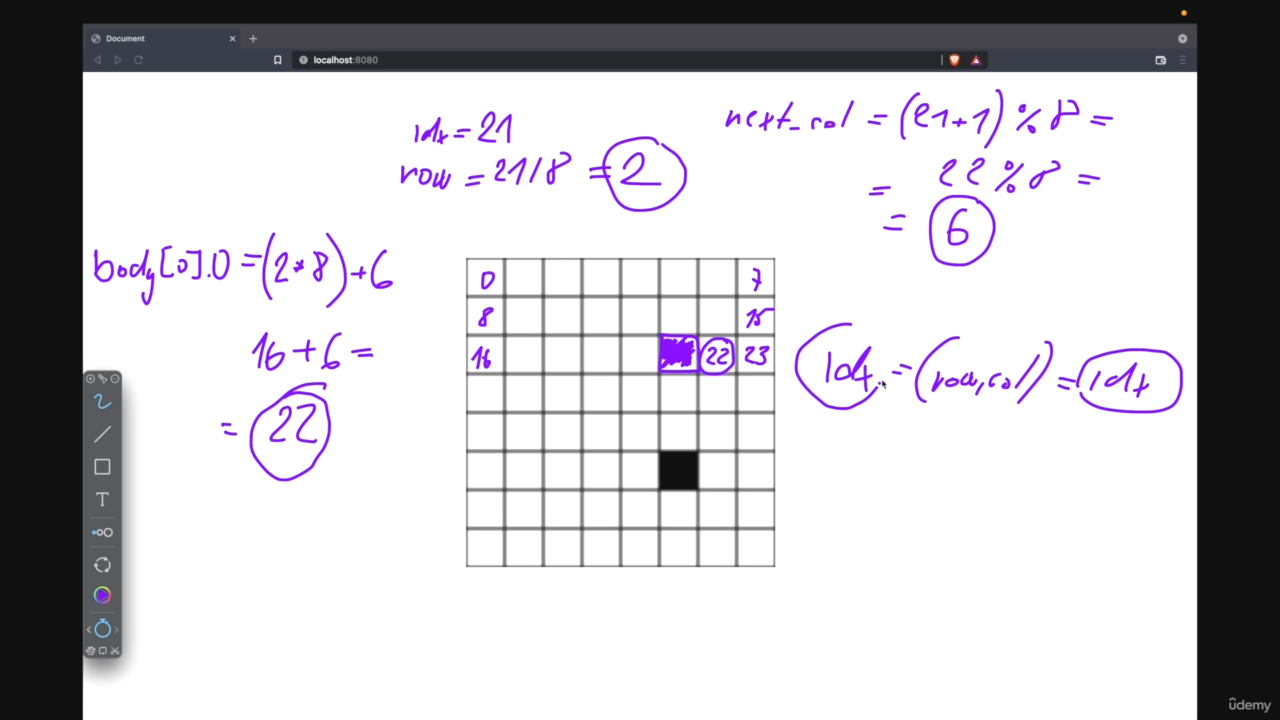 Document
localhost:8080
idx = 21
row = 21/8 = 2
next_col = (21+1) % 8 =
= 22 % 8 =
= 6
body[0].0 = (2*8)+6
16+6 =
= 22
0 7
8 15
16 22 23
idx = (row,col) = idx
T
ûdemy